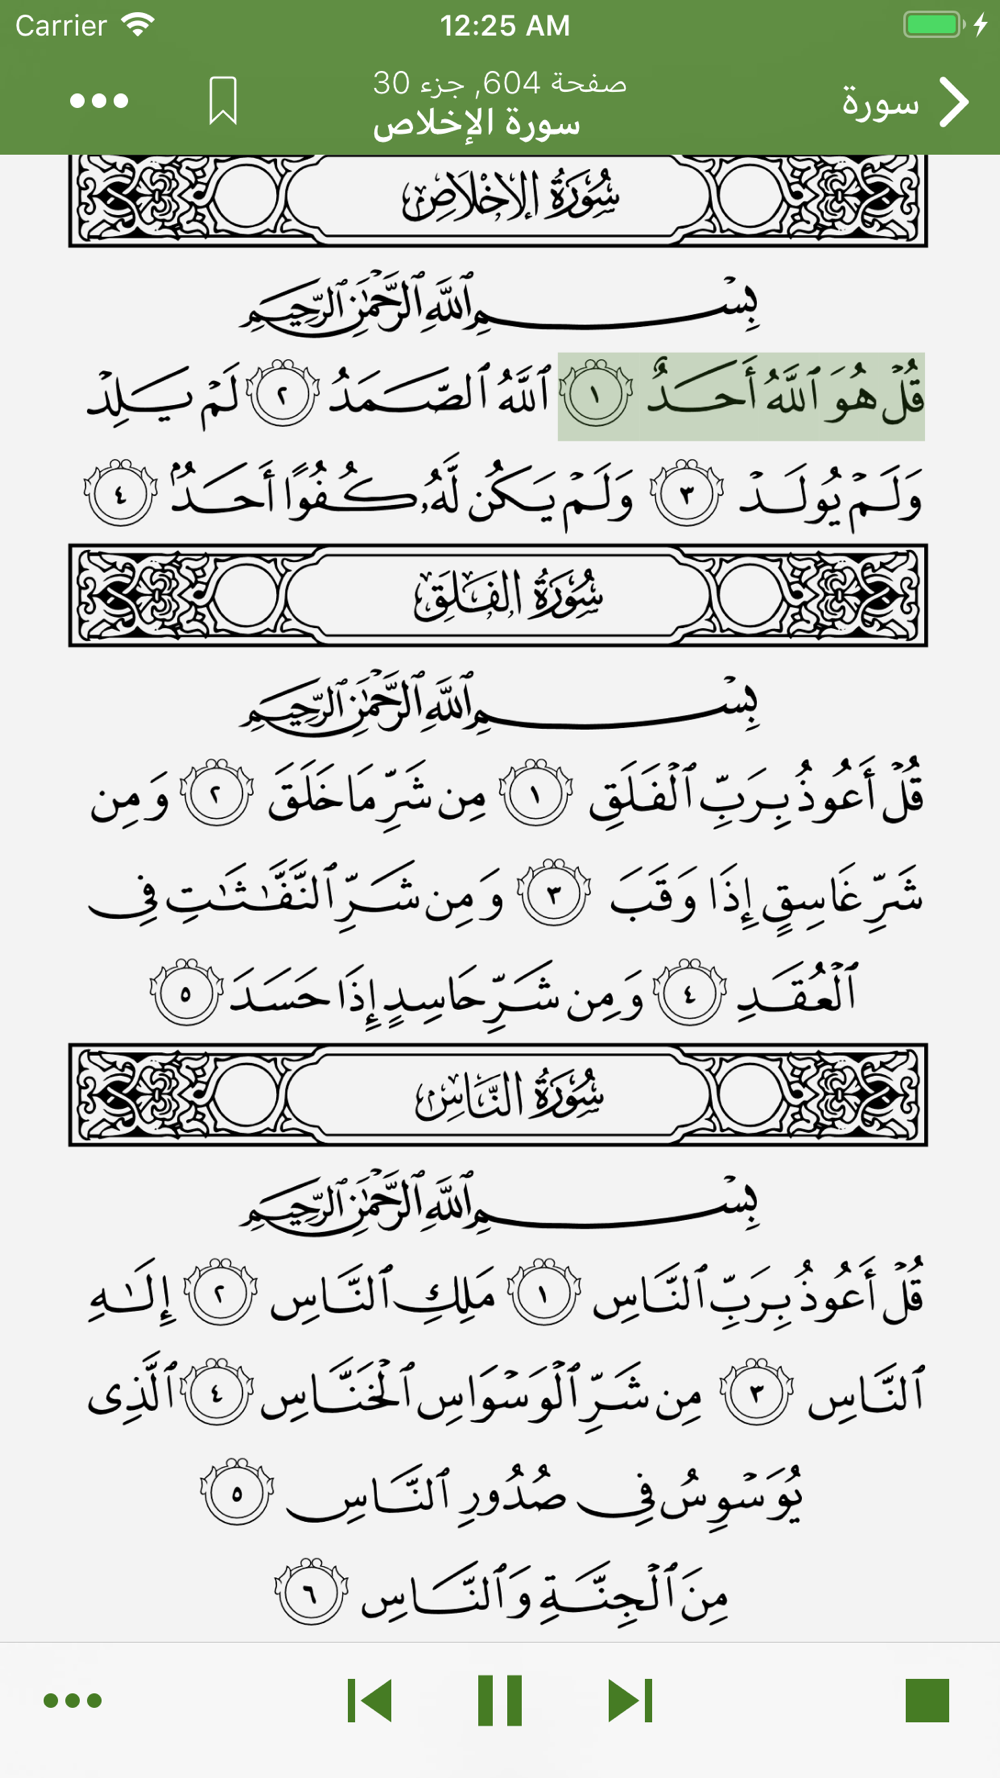 Carrier 12:25 AM
صفحة 604, جزء 30
سورة الإخلاص
سورة
سُورَةُ الإِخْلَاصِ
بِسْمِ ٱللَّهِ ٱلرَّحْمَٰنِ ٱلرَّحِيمِ
قُلْ هُوَ ٱللَّهُ أَحَدٌ ١ ٱللَّهُ ٱلصَّمَدُ ٢ لَمْ يَلِدْ
وَلَمْ يُولَدْ ٣ وَلَمْ يَكُن لَّهُۥ كُفُوًا أَحَدٌۢ ٤
سُورَةُ الفَلَقِ
بِسْمِ ٱللَّهِ ٱلرَّحْمَٰنِ ٱلرَّحِيمِ
قُلْ أَعُوذُ بِرَبِّ ٱلْفَلَقِ ١ مِن شَرِّ مَا خَلَقَ ٢ وَمِن
شَرِّ غَاسِقٍ إِذَا وَقَبَ ٣ وَمِن شَرِّ ٱلنَّفَّٰثَٰتِ فِى
ٱلْعُقَدِ ٤ وَمِن شَرِّ حَاسِدٍ إِذَا حَسَدَ ٥
سُورَةُ النَّاسِ
بِسْمِ ٱللَّهِ ٱلرَّحْمَٰنِ ٱلرَّحِيمِ
قُلْ أَعُوذُ بِرَبِّ ٱلنَّاسِ ١ مَلِكِ ٱلنَّاسِ ٢ إِلَٰهِ
ٱلنَّاسِ ٣ مِن شَرِّ ٱلْوَسْوَاسِ ٱلْخَنَّاسِ ٤ ٱلَّذِى
يُوَسْوِسُ فِى صُدُورِ ٱلنَّاسِ ٥
مِنَ ٱلْجِنَّةِ وَٱلنَّاسِ ٦